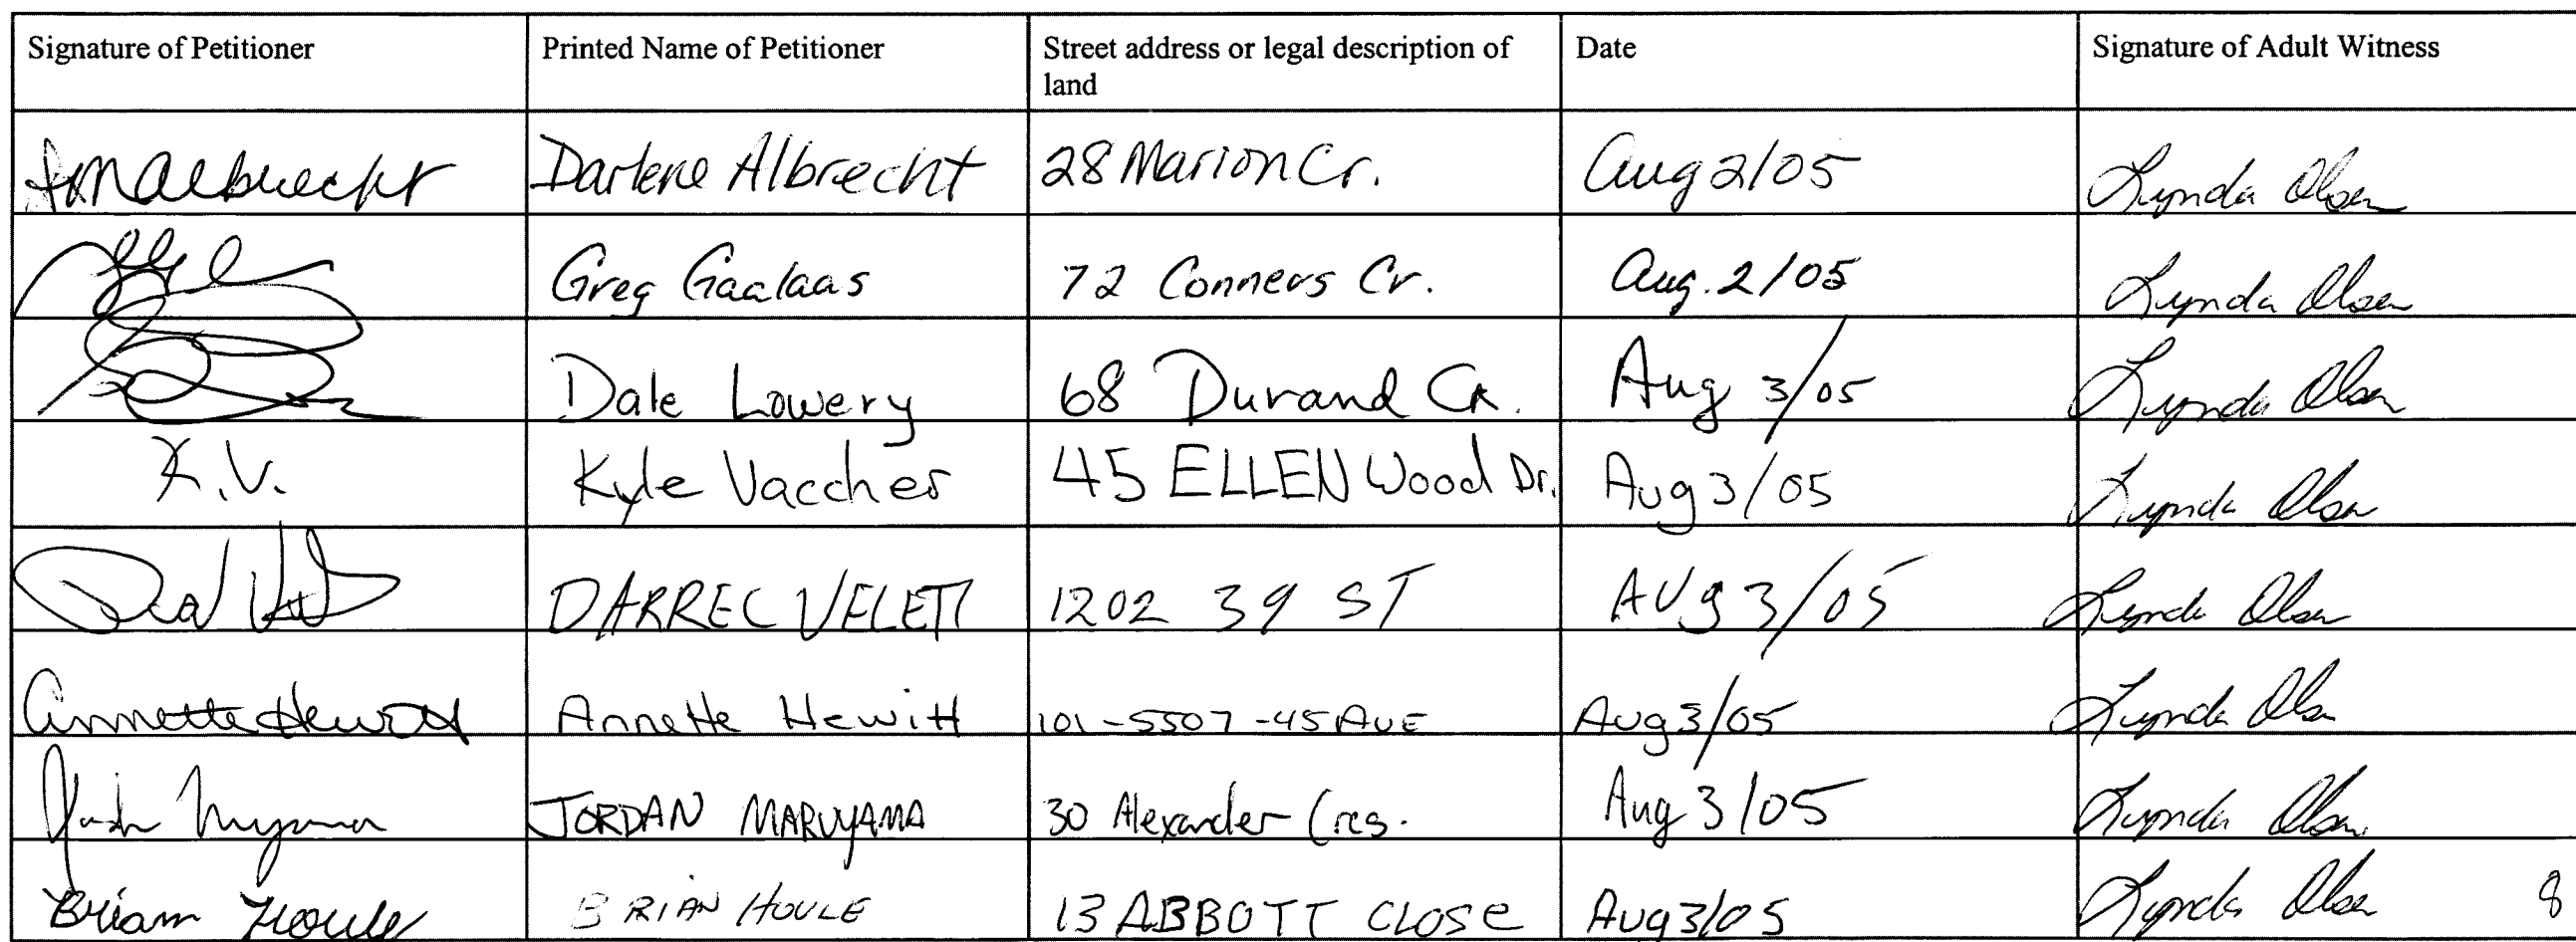 Signature of Petitioner Printed Name of Petitioner Street address or legal description of land Date Signature of Adult Witness
DMAlbrecht Darlene Albrecht 28 Marion Cr. Aug 2/05 Lynda Olsen
Greg Gaalaas 72 Conners Cr. Aug. 2/05 Lynda Olsen
Dale Lowery 68 Durand Cr. Aug 3/05 Lynda Olsen
K.V. Kyle Vaccher 45 ELLENWood Dr. Aug 3/05 Lynda Olsen
1202 39 ST AUg 3/05 Lynda Olsen
Annette Hewitt Annette Hewitt 101-5507-45 AVE Aug 3/05 Lynda Olsen
JORDAN MARUYAMA 30 Alexander Cres. Aug 3/05 Lynda Olsen
Brian Houle BRIAN HOULE 13 ABBOTT CLOSE Aug 3/05 Lynda Olsen 8